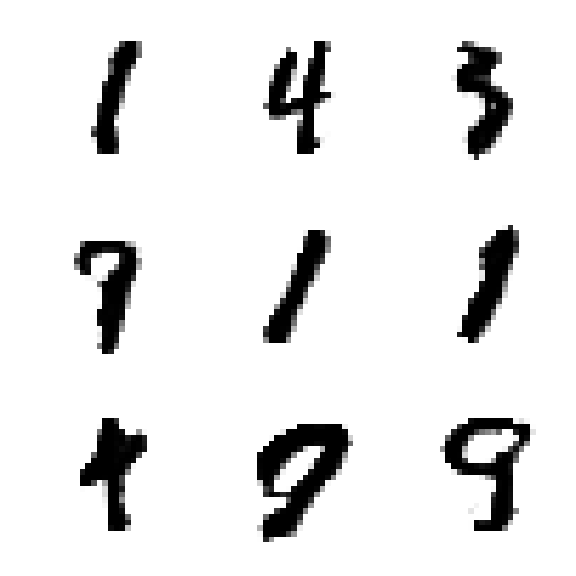 1 4 3
7 1 1
4 9 9